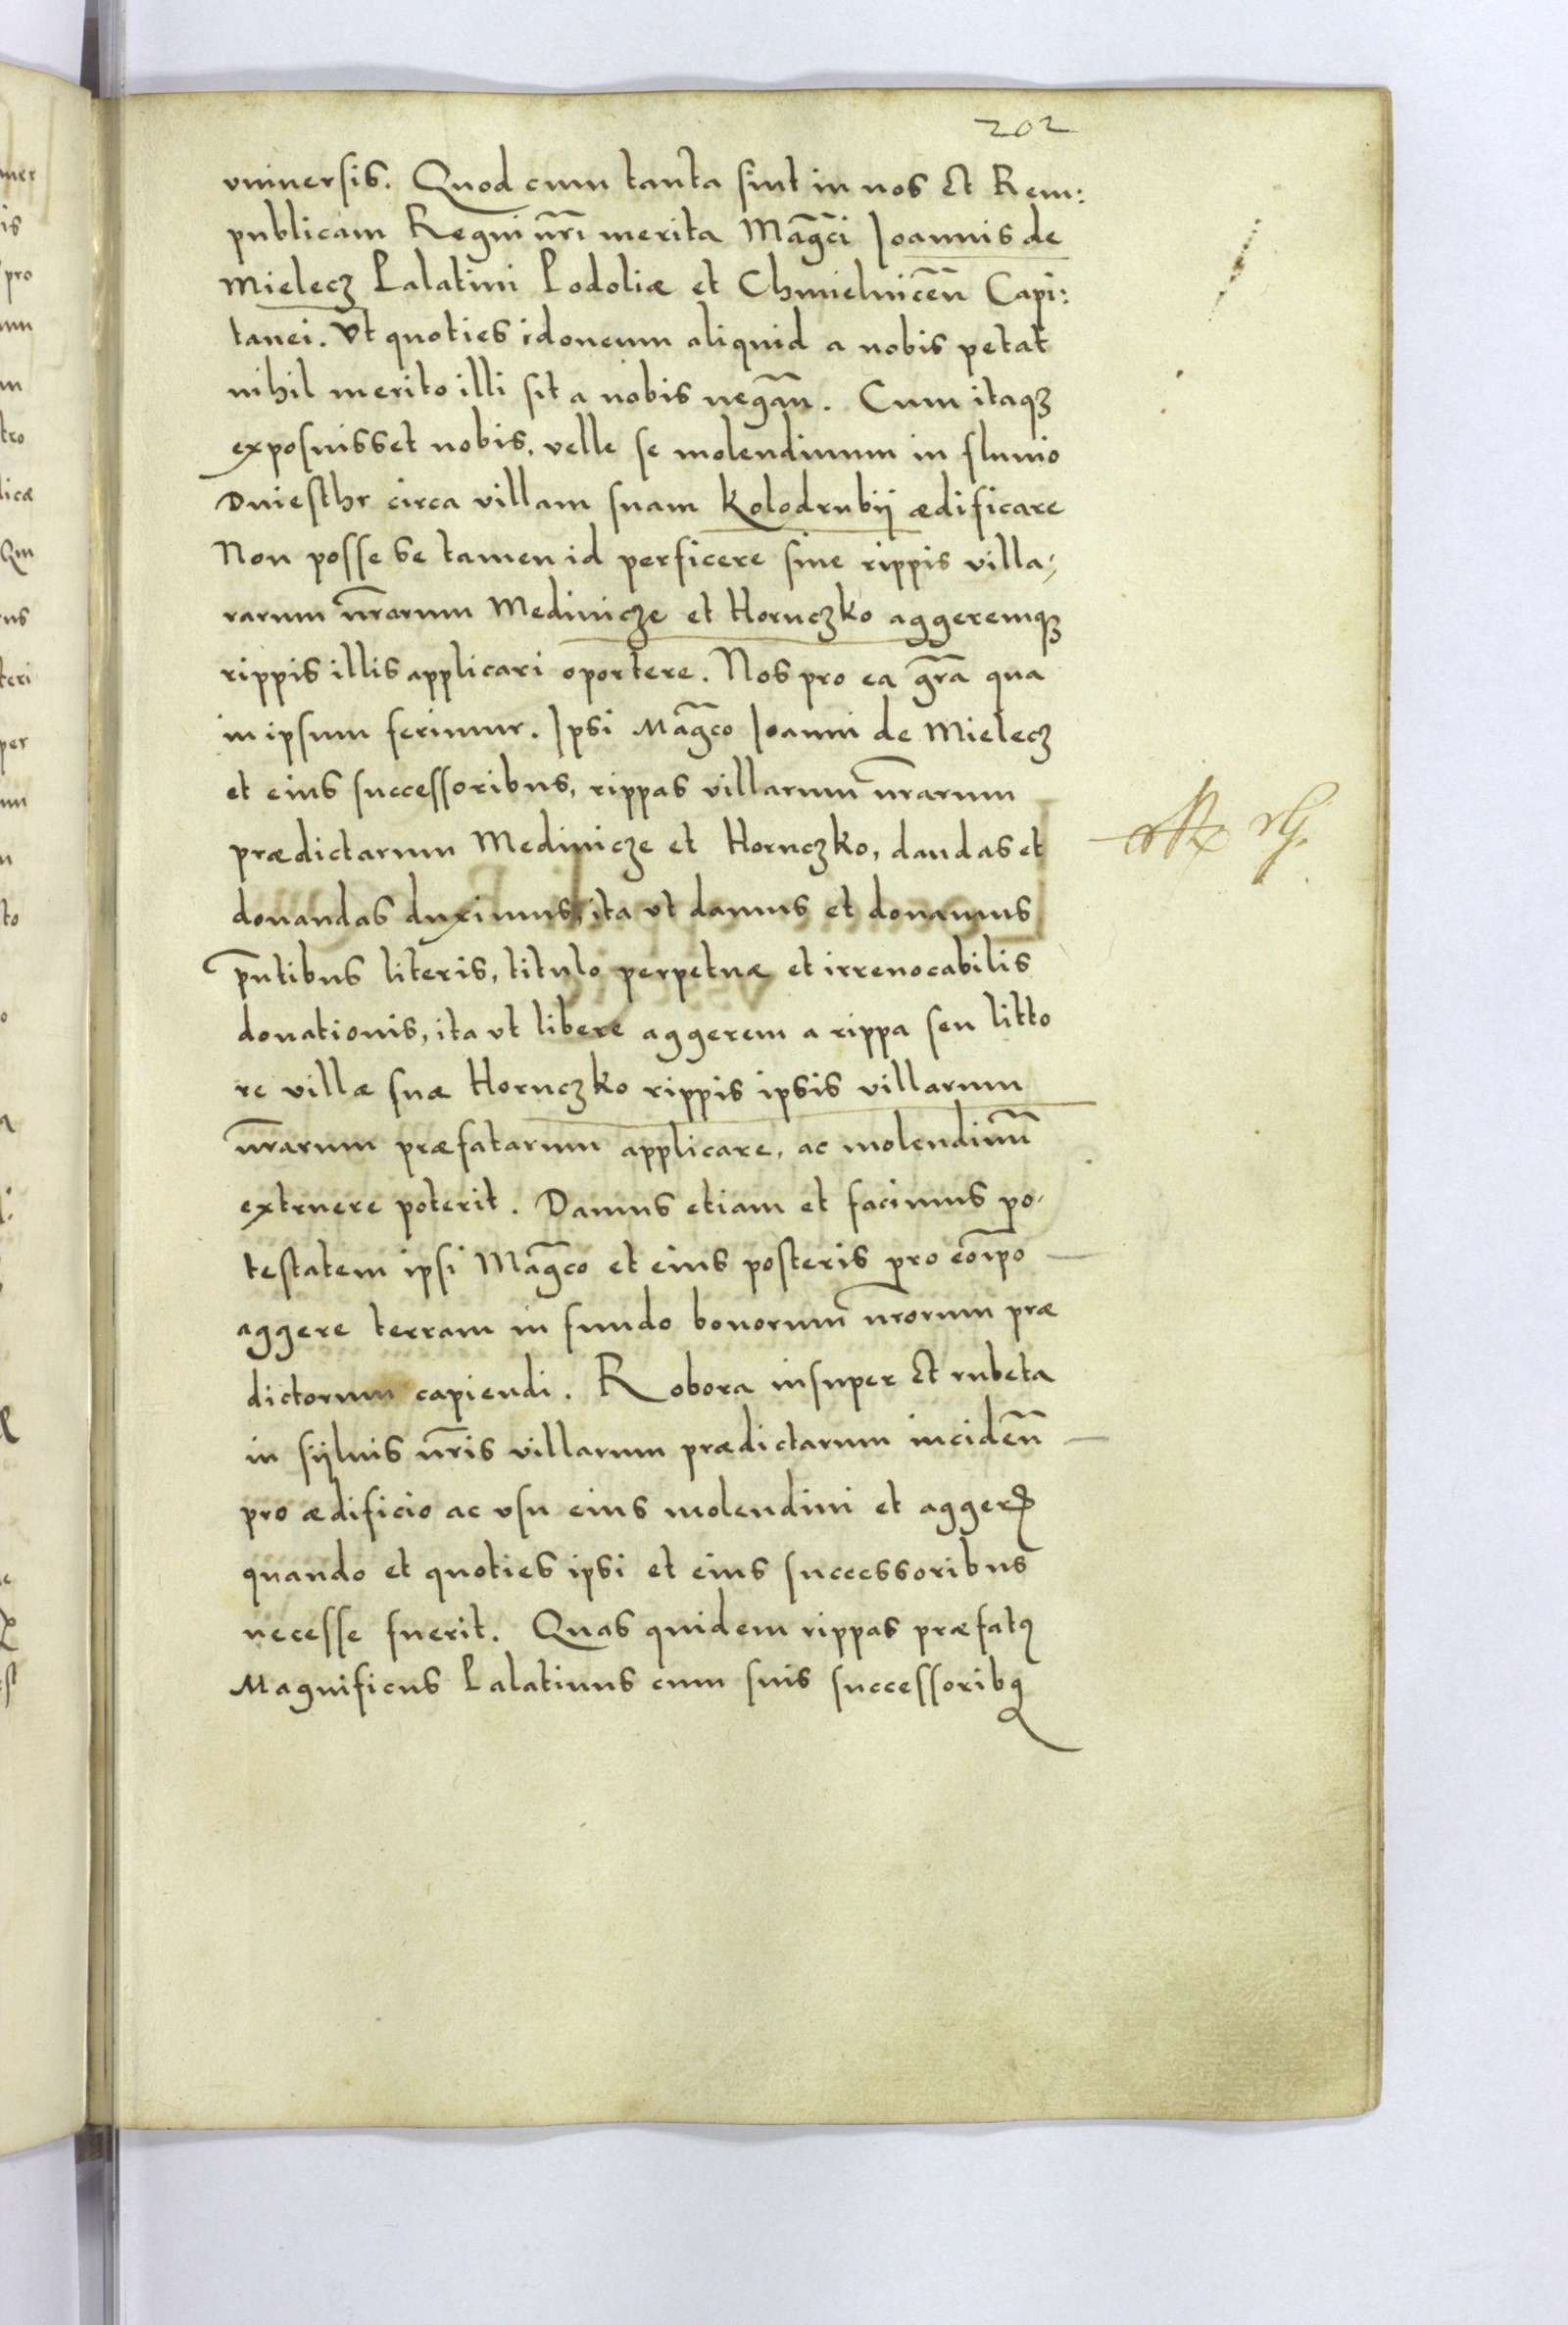 202
vniuersis. Quod cum tanta sint in nos et Rem:
publicam Regni nr̃i merita Mag̃ci Joannis de
Mielecz Palatini Podoliæ et Chmielnicẽn Capi:
tanei. Vt quoties idoneum aliquid a nobis petat
nihil merito illi sit a nobis negãn. Cum itaqꝫ
exposuisset nobis, velle se molendinum in fluuio
Dniesthr circa villam suam Kolodrubij ædificare
Non posse se tamen id perficere sine rippis villa⸗
rarum nr̃arum Medinicze et Hornczko aggeremqꝫ
rippis illis applicari oportere. Nos pro ea gr̃a qua
in ipsum ferimur. Ipsi Mag̃co Joanni de Mielecz
et eius successoribus, rippas villarum nr̃arum
prædictarum Medinicze et Hornczko, dandas et
donandas duximus, ita vt damus et donamus
p̃ntibus literis, titulo perpetuæ et irreuocabilis
donationis, ita vt libere aggerem a rippa seu litto
re villæ suæ Hornczko rippis ipsis villarum
nr̃arum præfatarum applicare, ac molendinũ
extruere poterit. Damus etiam et facimus po⸗
testatem ipsi Mag̃co et eius posteris pro eor̃po
aggere terram in fundo bonorum nr̃orum præ
dictorum capiendi. Robora insuper et rubeta
in syluis nr̃is villarum prædictarum incidẽn
pro ædificio ac vsu eius molendini et aggerꝭ
quando et quoties ipsi et eius successoribus
necesse fuerit. Quas quidem rippas præfatꝰ
Magnificus Palatinus cum suis successoribꝫ